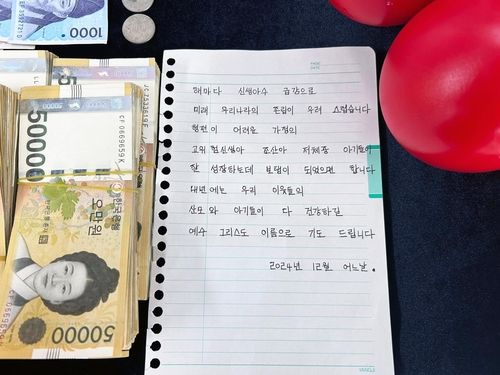 1000
50000
CF 0669659K
한국은행
오만원
50000
PAGE
DATE
해마다 신생아수 급감으로
미래 우리나라의 존립이 우려 스럽습니다
형편이 어려운 가정의
고위험신생아 조산아 저체중 아기들이
잘 성장하는데 보탬이 되었으면 합니다
내년에는 우리 이웃들의
산모와 아기들이 다 건강하길
예수 그리스도 이름으로 기도 드립니다
2024년 12월 어느날.